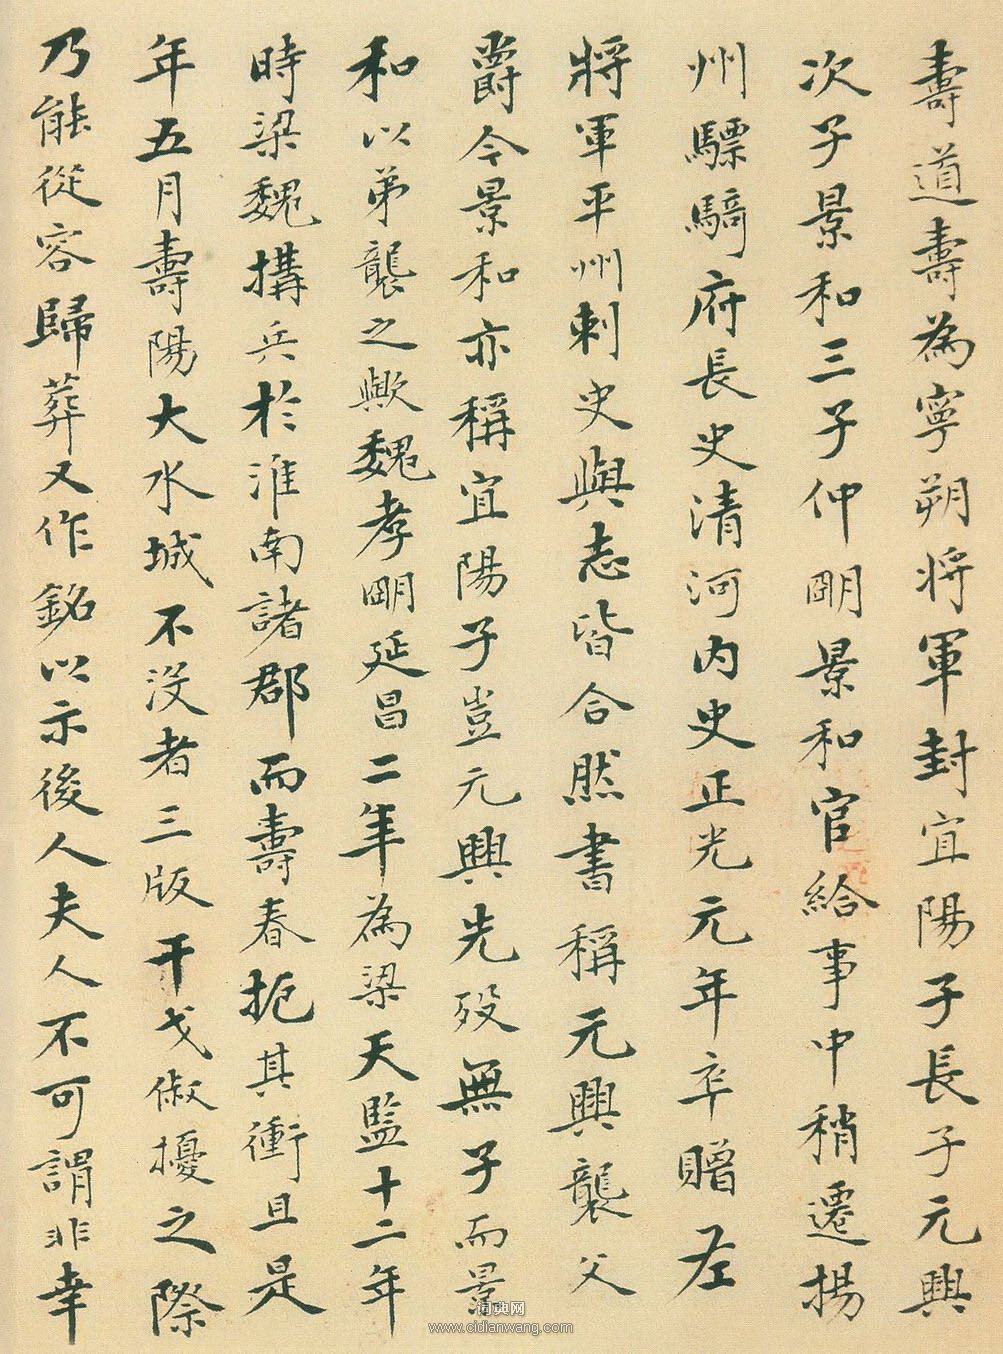 壽道壽為寧朔將軍封宜陽子長子元興
次子景和三子仲明景和官給事中稍遷揚
州驃騎府長史清河內史正光元年卒贈左
將軍平州刺史與志皆合然書稱元興襲父
爵今景和亦稱宜陽子豈元興先歿無子而景
和以弟襲之歟魏孝明延昌二年為梁天監十二年
時梁魏搆兵於淮南諸郡而壽春扼其衝且是
年五月壽陽大水城不沒者三版干戈俶擾之際
乃能從容歸葬又作銘以示後人夫人不可謂非幸
词典网
www.cidianwang.com